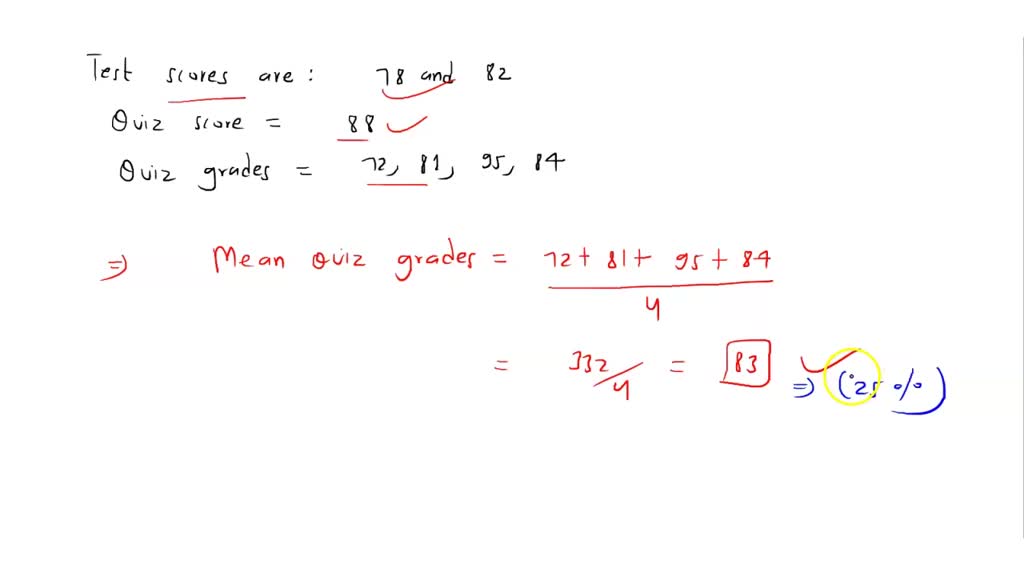 Test scores are : 78 and 82
Quiz score = 88
Quiz grades = 72, 81, 95, 84
⇒ Mean Quiz grades = 72 + 81 + 95 + 84
4
= 332/4 = 83
⇒ (25 %)